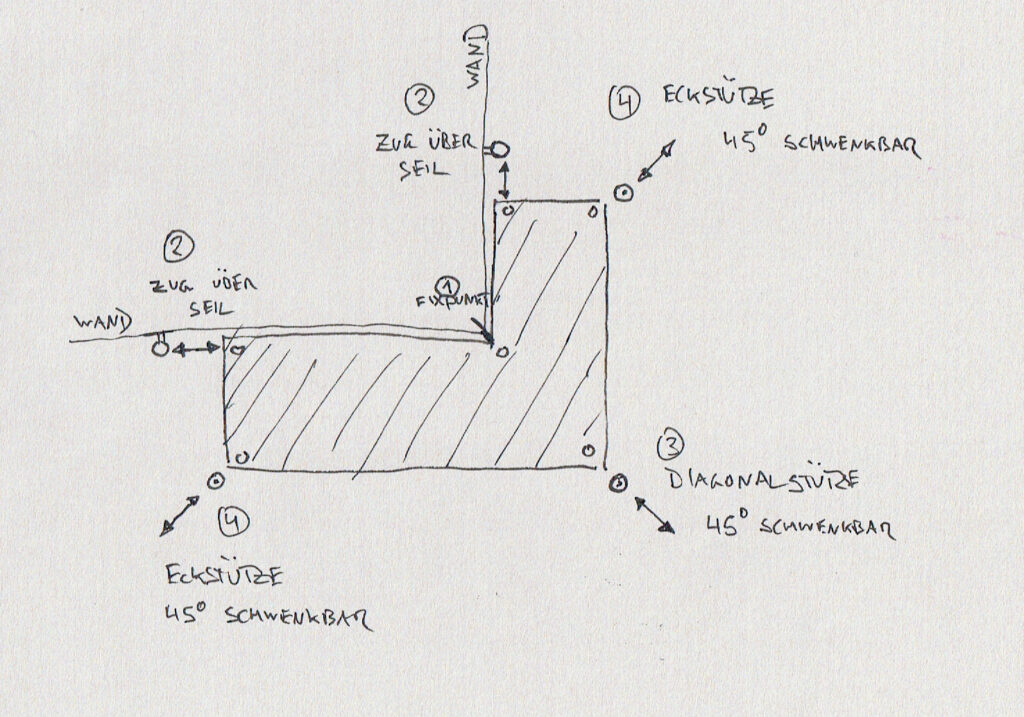 WAND
②
ZUG ÜBER
SEIL
④ ECKSTÜTZE
45° SCHWENKBAR
②
ZUG ÜBER
SEIL
WAND
①
FIXPUNKT
③
DIAGONALSTÜTZE
45° SCHWENKBAR
④
ECKSTÜTZE
45° SCHWENKBAR